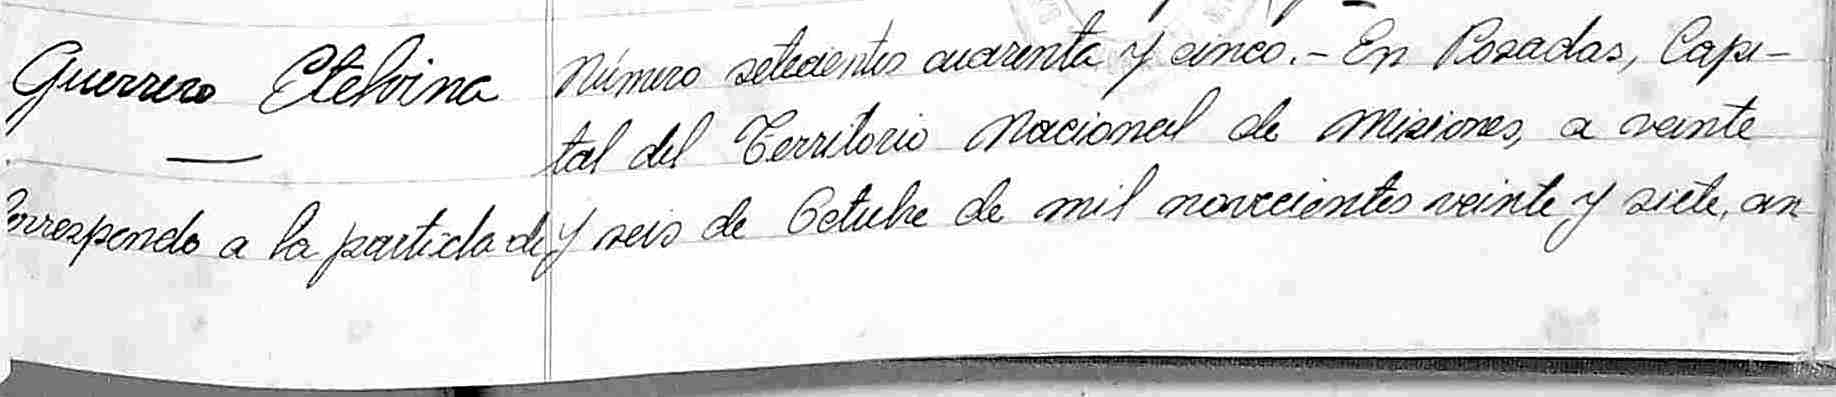 Guerrero Etelvina
Correspondo a la partida de
Número setecientos cuarenta y cinco.- En Posadas, Capi-
tal del Territorio Nacional de Misiones, a veinte
y seis de Octubre de mil novecientos veinte y siete, an